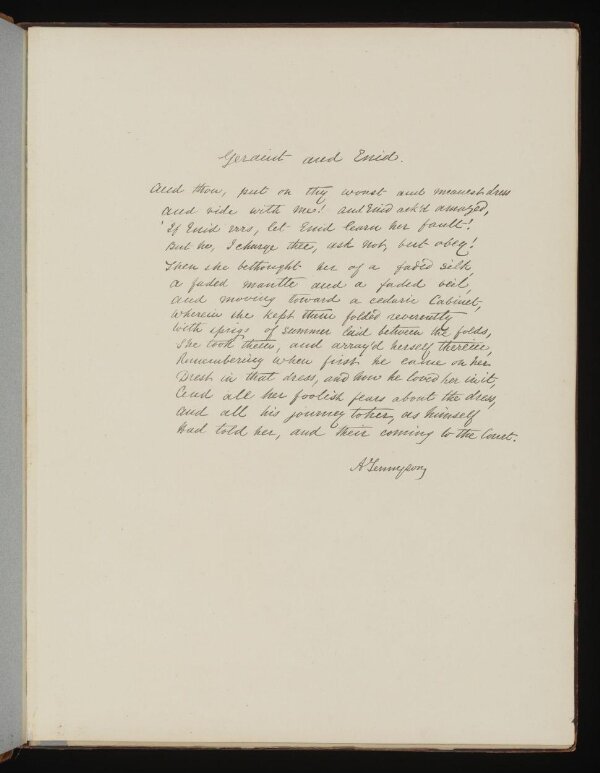 Geraint and Enid.
And thou, put on thy worst and meanest dress
And ride with me! and Enid ask'd amazed,
'If Enid errs, let Enid learn her fault'!
But he, I charge thee, ask not, but obey!
Then she bethought her of a faded silk,
A faded mantle and a faded veil,
And moving toward a cedarn Cabinet,
Wherein she kept them folded reverently
With sprigs of summer laid between the folds,
She took them, and array'd herself therein,
Remembering when first he came on her
Drest in that dress, and how he loved her in it,
And all her foolish fears about the dress,
And all his journey to her, as himself
Had told her, and their coming to the Court.
A Tennyson